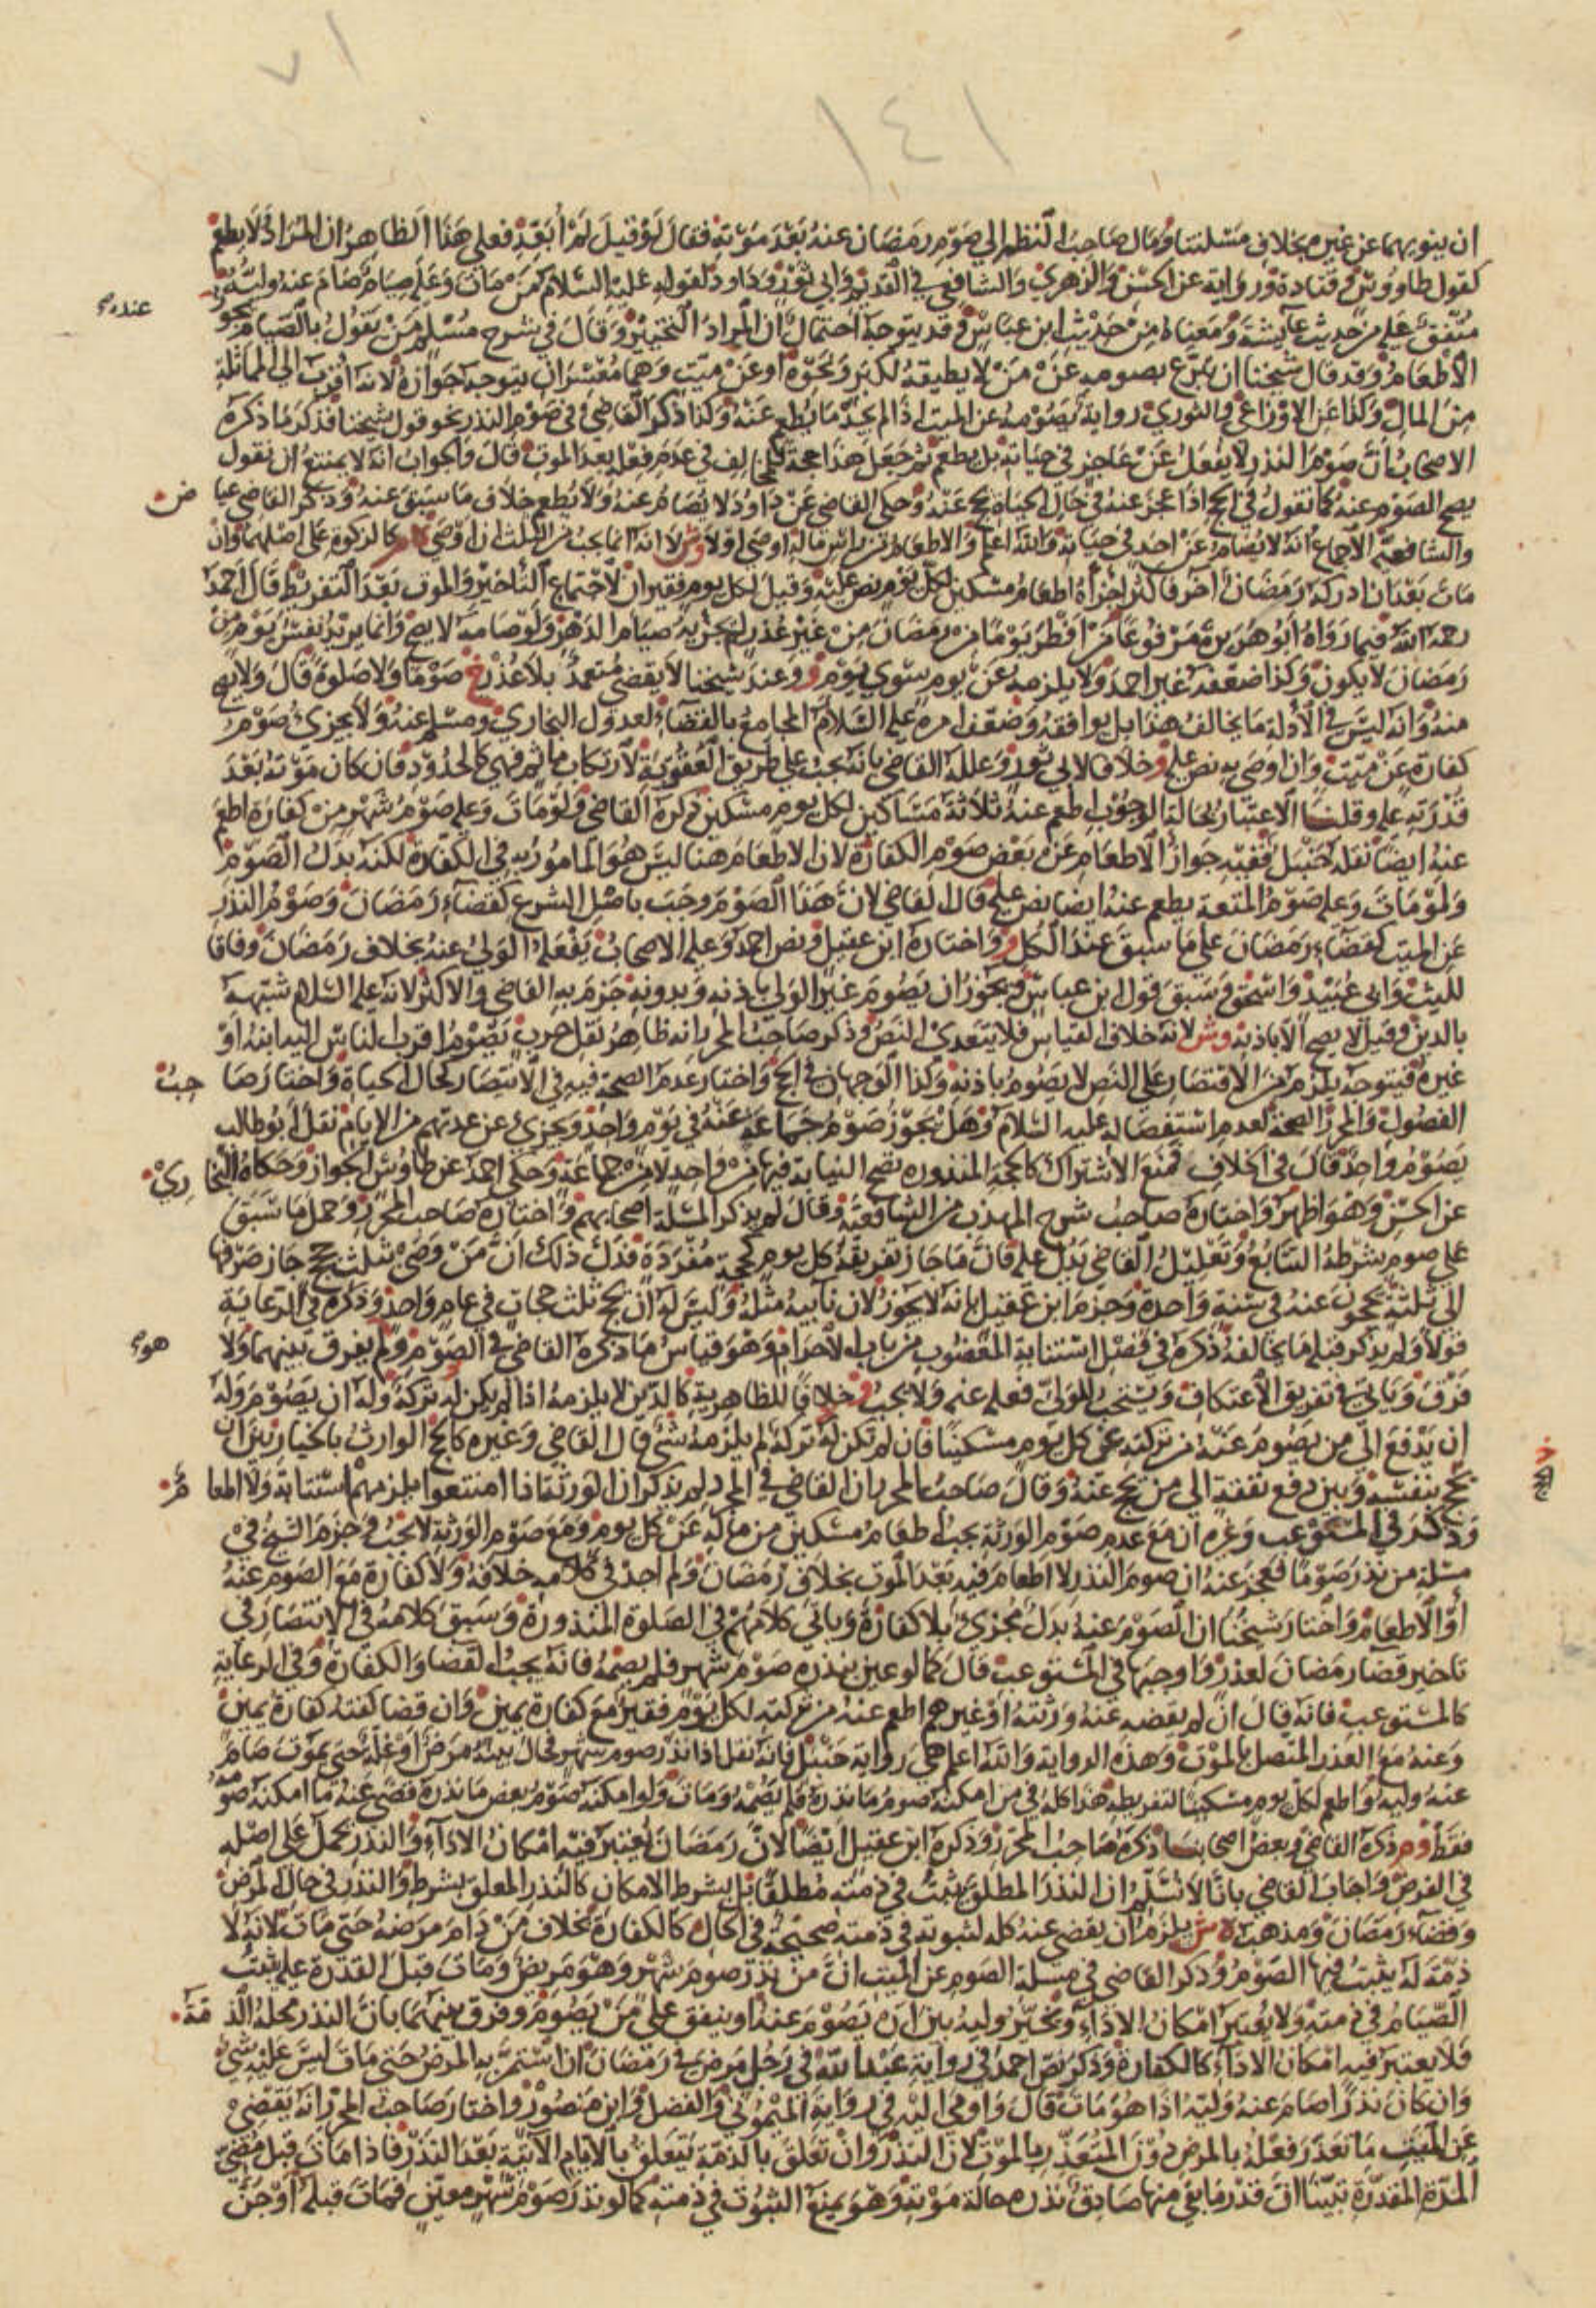 ٧١
١٤١
ان ينويهما عن غيره بخلاف مسئلتنا ومال صاحب النظم الي صوم رمضان عنه بعد موته فقال لو قيل لم أبعد فعلي هذا الظاهر ان المراد ولا يطعم
كقول طاووس وقتادة ورواية عن الحسن والزهري والشافعي في القديم وابي ثور وداود لقوله عليه السلام من مات وعليه صيام صام عنه وليه
متفق عليه من حديث عايشة ومعناه من حديث ابن عباس وقد يتوجه احتمال ان المراد التخيير وقال في شرح مسلم من يقول بالصيام يجوز عنده
الاطعام وقد قال شيخنا ان تبرع بصومه عن من لا يطيقه لكبر ونحوه او عن ميت وهما معسران يتوجه جوازه لانه اقرب الي المماثلة
من المال وكذا عن الاوزاعي والثوري رواية بصومه عن الميت اذا لم يجد ما يطعم عنه وكذا ذكر القاضي في صوم النذر نحو قول شيخنا فذكر ما ذكره
الاصحاب ان صوم النذر لا يفعل عن عاجز في حياته بل يطعم ثم جعل هذا حجة للمخالف في عدم فعله بعد الموت قال والجواب انه لا يمتنع ان نقول
يصح الصوم عنه كما نقول في الحج اذا عجز عنه في حال الحياة يحج عنه وحكي القاضي عن داود لا يصام عنه ولا يطعم خلاف ما سبق عنه وذكر القاضي عياض
والشافعية الاجماع انه لا يصام عن احد في حياته والله اعلم والاطعام من راس ماله اوصي اولا وش لا انه انما يجب من الثلث ان اوصي كالزكوة علي اصلهما وان
مات بعد ان ادركه رمضان آخر فاكثر اجزاه اطعام مسكين لكل يوم نص عليه وقيل لكل يوم فقيران لاجتماع التأخير والموت بعد التفريط قال احمد
رحمه الله فيما رواه ابو هريرة مرفوعا من افطر يوما من رمضان من غير عذر لم يجزيه صيام الدهر ولو صامه لا يصح وانما يريد نفس يوم من
رمضان لا يكون وكذا ضعفه غير احمد ولا يلزمه عن يوم سوي يوم و وعند شيخنا لا يقضي متعمد بلا عذر خ صوما ولا صلوة قال ولا يصح
منه وانه ليس في الأدلة ما يخالف هذا بل يوافقه وضعف امره عليه السلام المجامع بالقضاء لعدول البخاري ومسلم عنه ولا يجزئ صوم
كفارة عن ميت وان اوصي به نص عليه و خلافا لابي ثور وعلله القاضي بانه يجب علي طريق العقوبة لارتكاب مأثم فهي كالحدود فان كان موته بعد
قدرته عليه وقلنا الاعتبار بحالة الوجوب اطعم عنه ثلاثة مساكين لكل يوم مسكين ذكره القاضي ولو مات وعليه صوم شهر من كفارة اطعم
عنه ايضا نقله حنبل ففيه جواز الاطعام عن بعض صوم الكفارة لان الاطعام هنا ليس هو المامور به في الكفارة لكنه بدل الصوم
ولو مات وعليه صوم المتعة يطعم عنه ايضا نص عليه قال القاضي لان هذا الصوم وجب باصل الشرع كقضاء رمضان وصوم النذر
عن الميت كقضاء رمضان علي ما سبق عند الكل و واختاره ابن عقيل ونص احمد وعليه الاصحاب يفعله الولي عنه بخلاف رمضان وفاقا
لليث وابي عبيد واسحق وسبق قول ابن عباس ويجوز ان يصوم غير الولي باذنه وبدونه جزم به القاضي والاكثر لانه عليه السلام شبهه
بالدين وقيل لا يصح الا باذنه وش لانه خلاف القياس فلا يتعدي النص وذكر صاحب المحرر انه ظاهر نقل حرب يصوم اقرب الناس اليه ابنه او
غيره فيتوجه يلزم من الاقتصار علي النص لا يصوم باذنه وكذا الوجهان في الحج واختار عدم الصحة فيه في الانتصار كحال الحياة واختار صاحب
الفصول والمحرر الصحة لعدم استفصاله عليه السلام وهل يجوز صوم جماعة عنه في يوم واحد ويجزئ عن عدتهم من الايام نقل ابو طالب
يصوم واحد قال في الخلاف فمنع الاشتراك كالحجة المنذورة تصح النيابة فيها من واحد لا من جماعة وحكي احمد عن طاوس الجواز وحكاه البخاري
عن الحسن وهو اظهر واختاره صاحب شرح المهذب من الشافعية وقال لم يذكر المسئلة اصحابهم واختاره صاحب المحرر وحمل ما سبق
علي صوم بشرطه التتابع وتعليل القاضي يدل عليه فان ما جاز تفريقه كل يوم كحجة مفردة فدل ذلك ان من وصي بثلث حجج جاز صرفها
الي ثلثة يحجون عنه في سنة واحدة وجزم ابن عقيل بانه لا يجوز لان نايبه مثله وليس له ان يحج ثلث حجات في عام واحد وذكره في الرعاية
قولا ولم يذكر قبله ما يخالفه ذكره في فصل استنابة المعضوب من باب الاحرام وهو قياس ما ذكره القاضي في الصوم ولم يفرق بينهما ولا هو
فرق وياتي في تفريق الاعتكاف ويستحب للولي فعله عنه ولا يجب و خلافا للظاهرية كالدين لا يلزمه اذا لم يكن له تركة وله ان يصوم وله
ان يدفع الي من يصوم عنه من تركته عن كل يوم مسكينا فان لم تكن له تركة لم يلزمه شئ قال القاضي وغيره كالحج الوارث بالخيار بين ان
يحج بنفسه وبين دفع نفقة الي من يحج عنه وقال صاحب المحرر ان القاضي في المجرد لم يذكر ان الورثة اذا امتنعوا يلزمهم استنابة ولا المعامر
وذكر في المستوعب وغيره ان مع عدم صوم الورثة يجب اطعام مسكين من ماله عن كل يوم ومع صوم الورثة لا يجب وجزم الشيخ في
مسئلة من نذر صوما فعجز عنه ان صوم النذر لا اطعام فيه بعد الموت بخلاف رمضان ولم اجد في كلامه خلافه ولا كفارة مع الصوم عنه
أو الاطعام واختار شيخنا ان الصوم عنه بدل يجزئ بلا كفارة وياتي كلامهم في الصلوة المنذورة وسبق كلامه في الانتصار في
تاخير قضا رمضان لعذر واوجبها في المستوعب قال كما لو عين بنذره صوم شهر فلم يصمه فانه يجب القضا والكفارة وفي الرعاية
كالمستوعب فانه قال ان لم يقضه عنه ورثته او غيرهم اطعم عنه من تركته لكل يوم فقير مع كفارة يمين وان قضا كفته كفارة يمين
وعنه مع العذر المتصل بالموت وهذه الرواية والله اعلم هي رواية حنبل فانه نقل اذا نذر صوم شهر فحال بينه مرض او علة حتي يموت صام
عنه وليه واطعم لكل يوم مسكينا لتفريطه هذا كله في من امكنه صوم ما نذره فلم يصمه ومات ولو امكنه صوم بعض ما نذره قضي عنه ما امكنه صومه
فقط وم ذكره القاضي وبعض اصحابنا ذكره صاحب المحرر وذكره ابن عقيل ايضا لان رمضان يعتبر فيه امكان الاداء والنذر يحمل علي اصله
في الفرض واجاب القاضي بانا لا نسلم ان النذر المطلق يثبت في ذمته مطلقا بل بشرط الامكان كالنذر المعلق بشرط والنذر في حال المرض
وقضاء رمضان ومذهب ه ش يلزم ان يقضي عنه كله لثبوته في ذمته صحيحة في الحال كالكفارة بخلاف من دام مرضه حتي مات لانه لا
ذمة له يثبت فيها الصوم وذكر القاضي في مسئلة الصوم عن الميت ان من نذر صوم شهر وهو مريض ومات قبل القدرة عليه يثبت
الصيام في ذمته ولا يعتبر امكان الاداء ويخير وليه بين ان يصوم عنه او ينفق علي من يصوم وفرق بينهما بان النذر محله الذمة
فلا يعتبر فيه امكان الاداء كالكفارة وذكر نص احمد في رواية عبد الله في رجل مرض في رمضان ان استمر به المرض حتي مات ليس عليه شئ
وان كان نذرا صام عنه وليه اذا هو مات قال واومي اليه في رواية الميموني والفضل وابن منصور واختار صاحب المحرر انه يقضي
عن الميت ما تعذر فعله بالمرض دون المتعذر بالموت لان النذر وان تعلق بالذمة يتعلق بالايام الآتية بعد النذر فاذا مات قبل مضي
المدة المقدرة تبينا ان قدر ما بقي منها صادق نذره حالة موته وهو يمنع الثبوت في ذمته كما لو نذر صوم شهر معين فمات قبله او جن